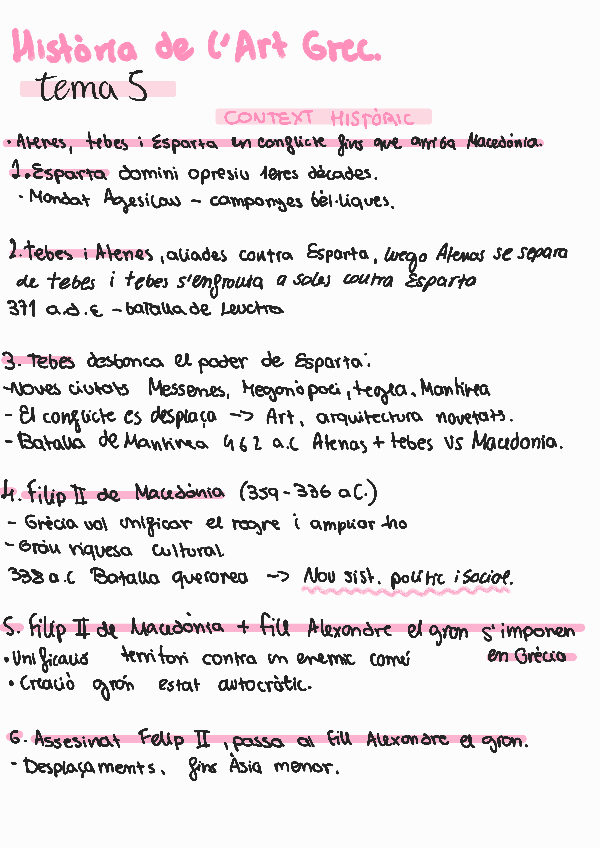 Història de l'Art Grec.
tema 5
CONTEXT HISTÒRIC
• Atenes, tebes i Esparta en conflicte fins que arriba Macedònia.
1. Esparta domini opresiu 1eres dècades.
• Mandat Agesilau - campanyes bèl·liques.
2. Tebes i Atenes, aliades contra Esparta, luego Atenas se separa
de tebes i tebes s'enfronta a soles contra Esparta
371 a.d.C - batalla de Leuctra
3. Tebes desbanca el poder de Esparta:
- Noves ciutats Messenes, Megalòpoli, tegea, Mantinea
- El conflicte es desplaça -> Art, arquitectura novetats.
- Batalla de Mantinea 462 a.C Atenas + tebes vs Macedonia.
4. Filip II de Macedònia (359-336 a.C.)
- Grècia vol unificar el regne i ampliar-ho
- Gran riquesa cultural
338 a.C Batalla queronea -> Nou sist. polític i social.
5. Filip II de Macedònia + fill Alexandre el gran s'imponen
en Grècia
• Unificació territori contra un enemic comú
• Creació gran estat autocràtic.
6. Assesinat Felip II, passa al fill Alexandre el gran.
- Desplaçaments, fins Àsia menor.